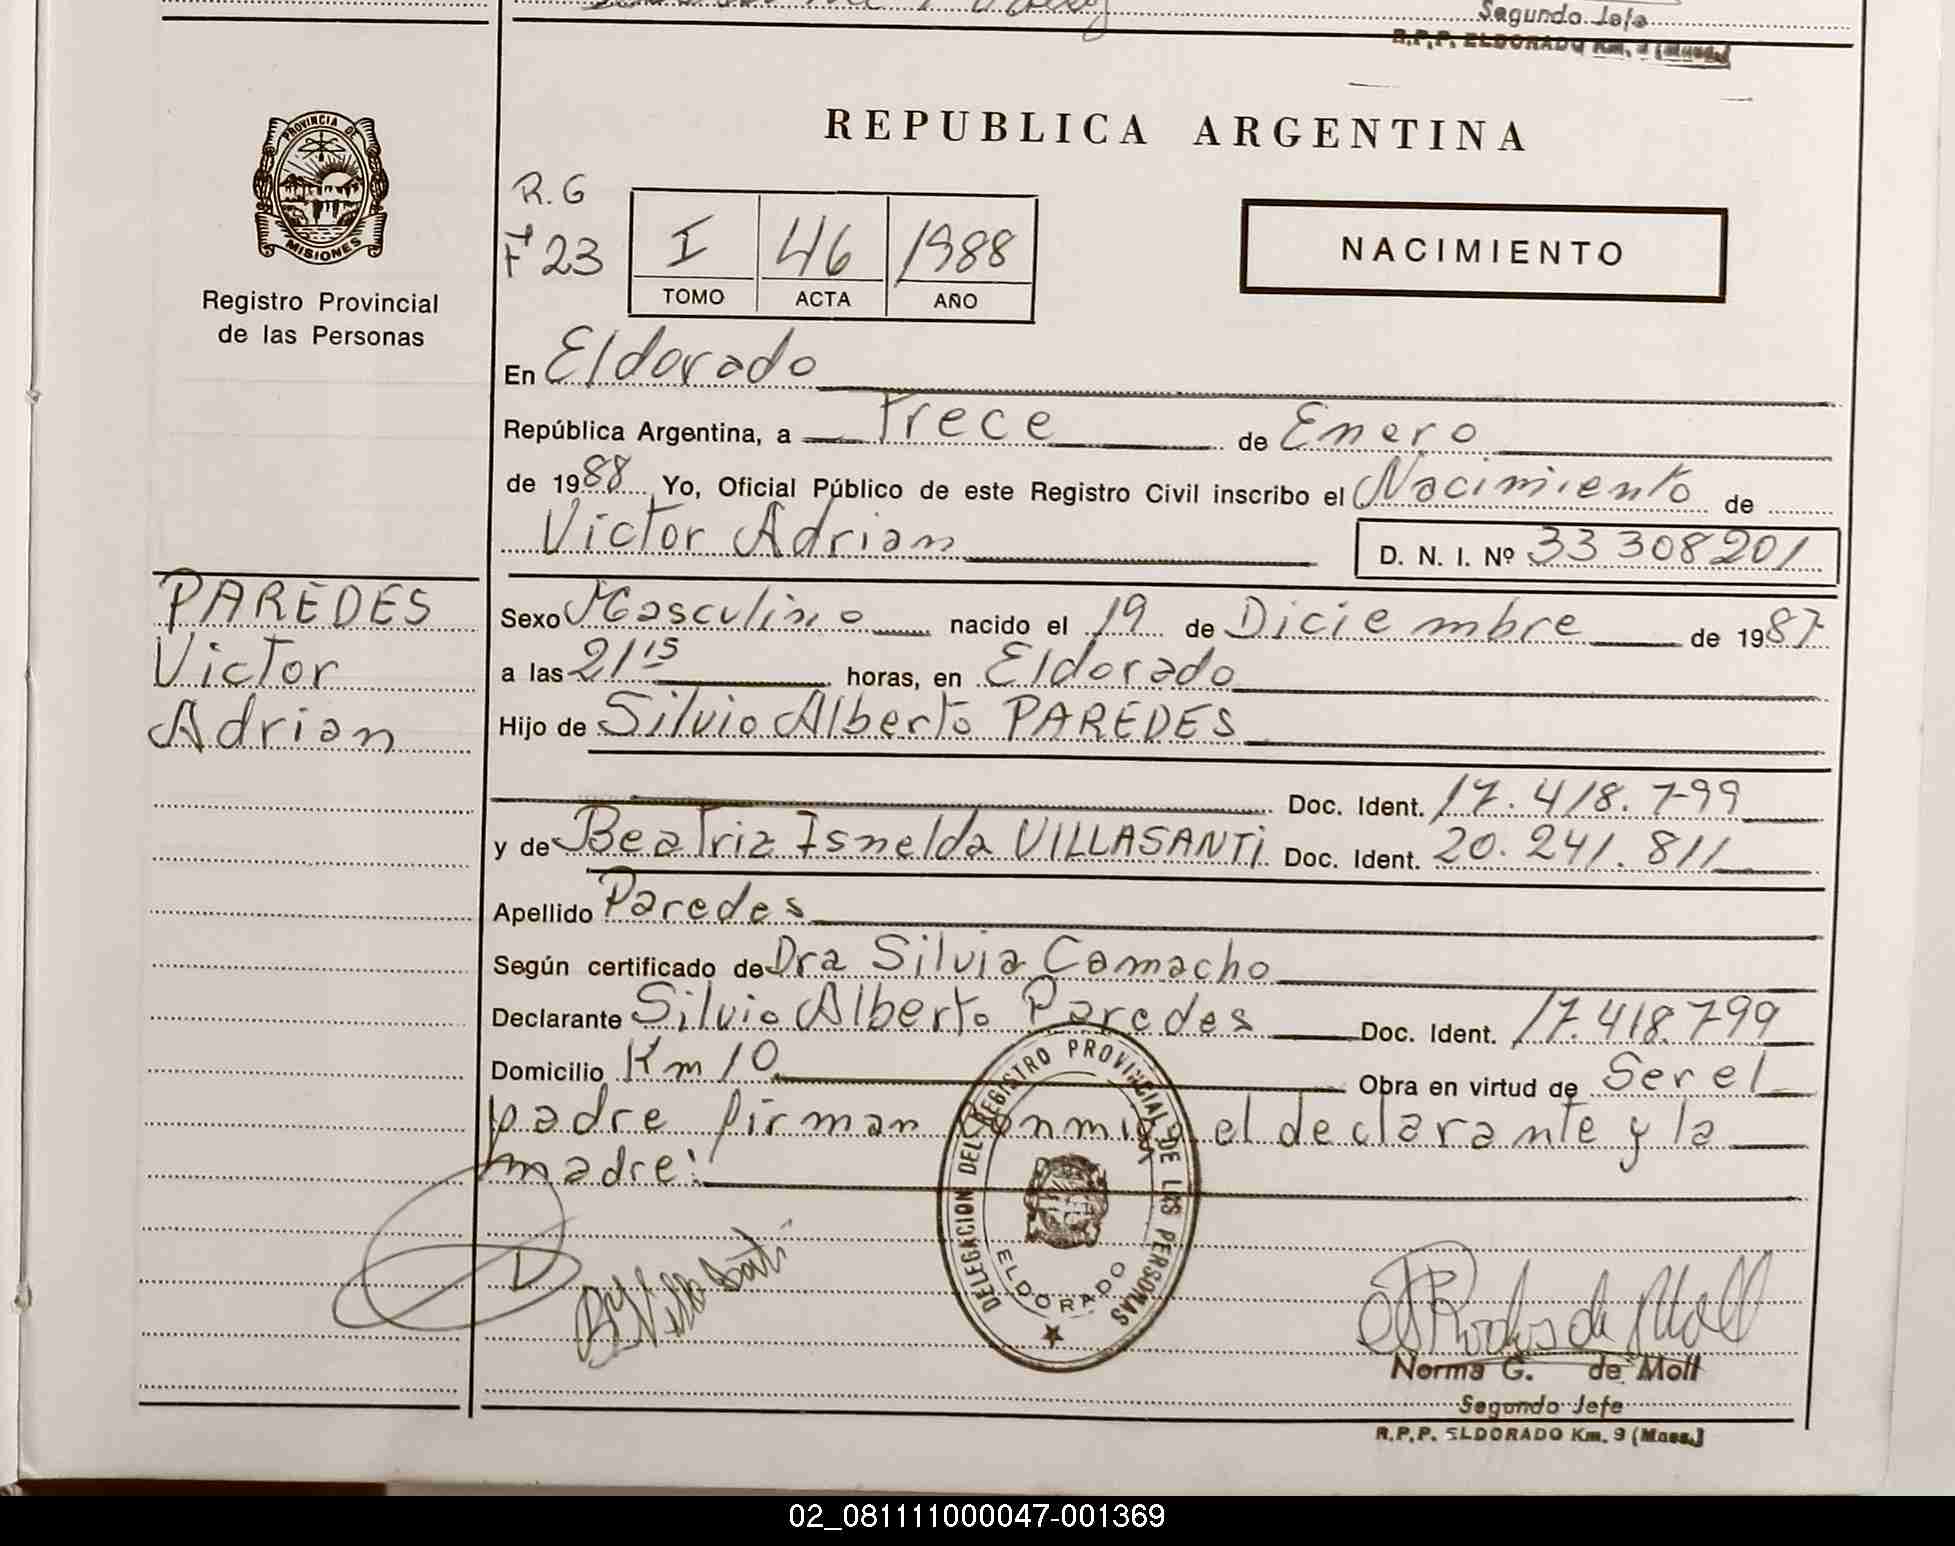 Segundo Jefe
R.P.P. ELDORADO Km. 9 (Mnes.)
PROVINCIA DE
MISIONES
Registro Provincial
de las Personas
REPUBLICA ARGENTINA
R.G
Fº 23
I 46 1988
TOMO ACTA AÑO
NACIMIENTO
En Eldorado
República Argentina, a Trece de Enero
de 1988 Yo, Oficial Público de este Registro Civil inscribo el Nacimiento de
Victor Adrian D. N. I. Nº 33 308201
PAREDES
Victor
Adrian
Sexo Masculino nacido el 19 de Diciembre de 1987
a las 21 15 horas, en Eldorado
Hijo de Silvio Alberto PAREDES
Doc. Ident. 17.418.799
y de Beatriz Ismelda VILLASANTi Doc. Ident. 20.241.811
Apellido Paredes
Según certificado de Dra Silvia Camacho
Declarante Silvio Alberto Paredes Doc. Ident. 17.418.799
Domicilio Km 10 Obra en virtud de Ser el
padre firman conmigo el declarante y la
madre:
DELEGACION DEL REGISTRO PROVINCIAL DE LAS PERSONAS
ELDORADO
Norma G. de Moll
Segundo Jefe
R.P.P. ELDORADO Km. 9 (Mnes.)
02_081111000047-001369